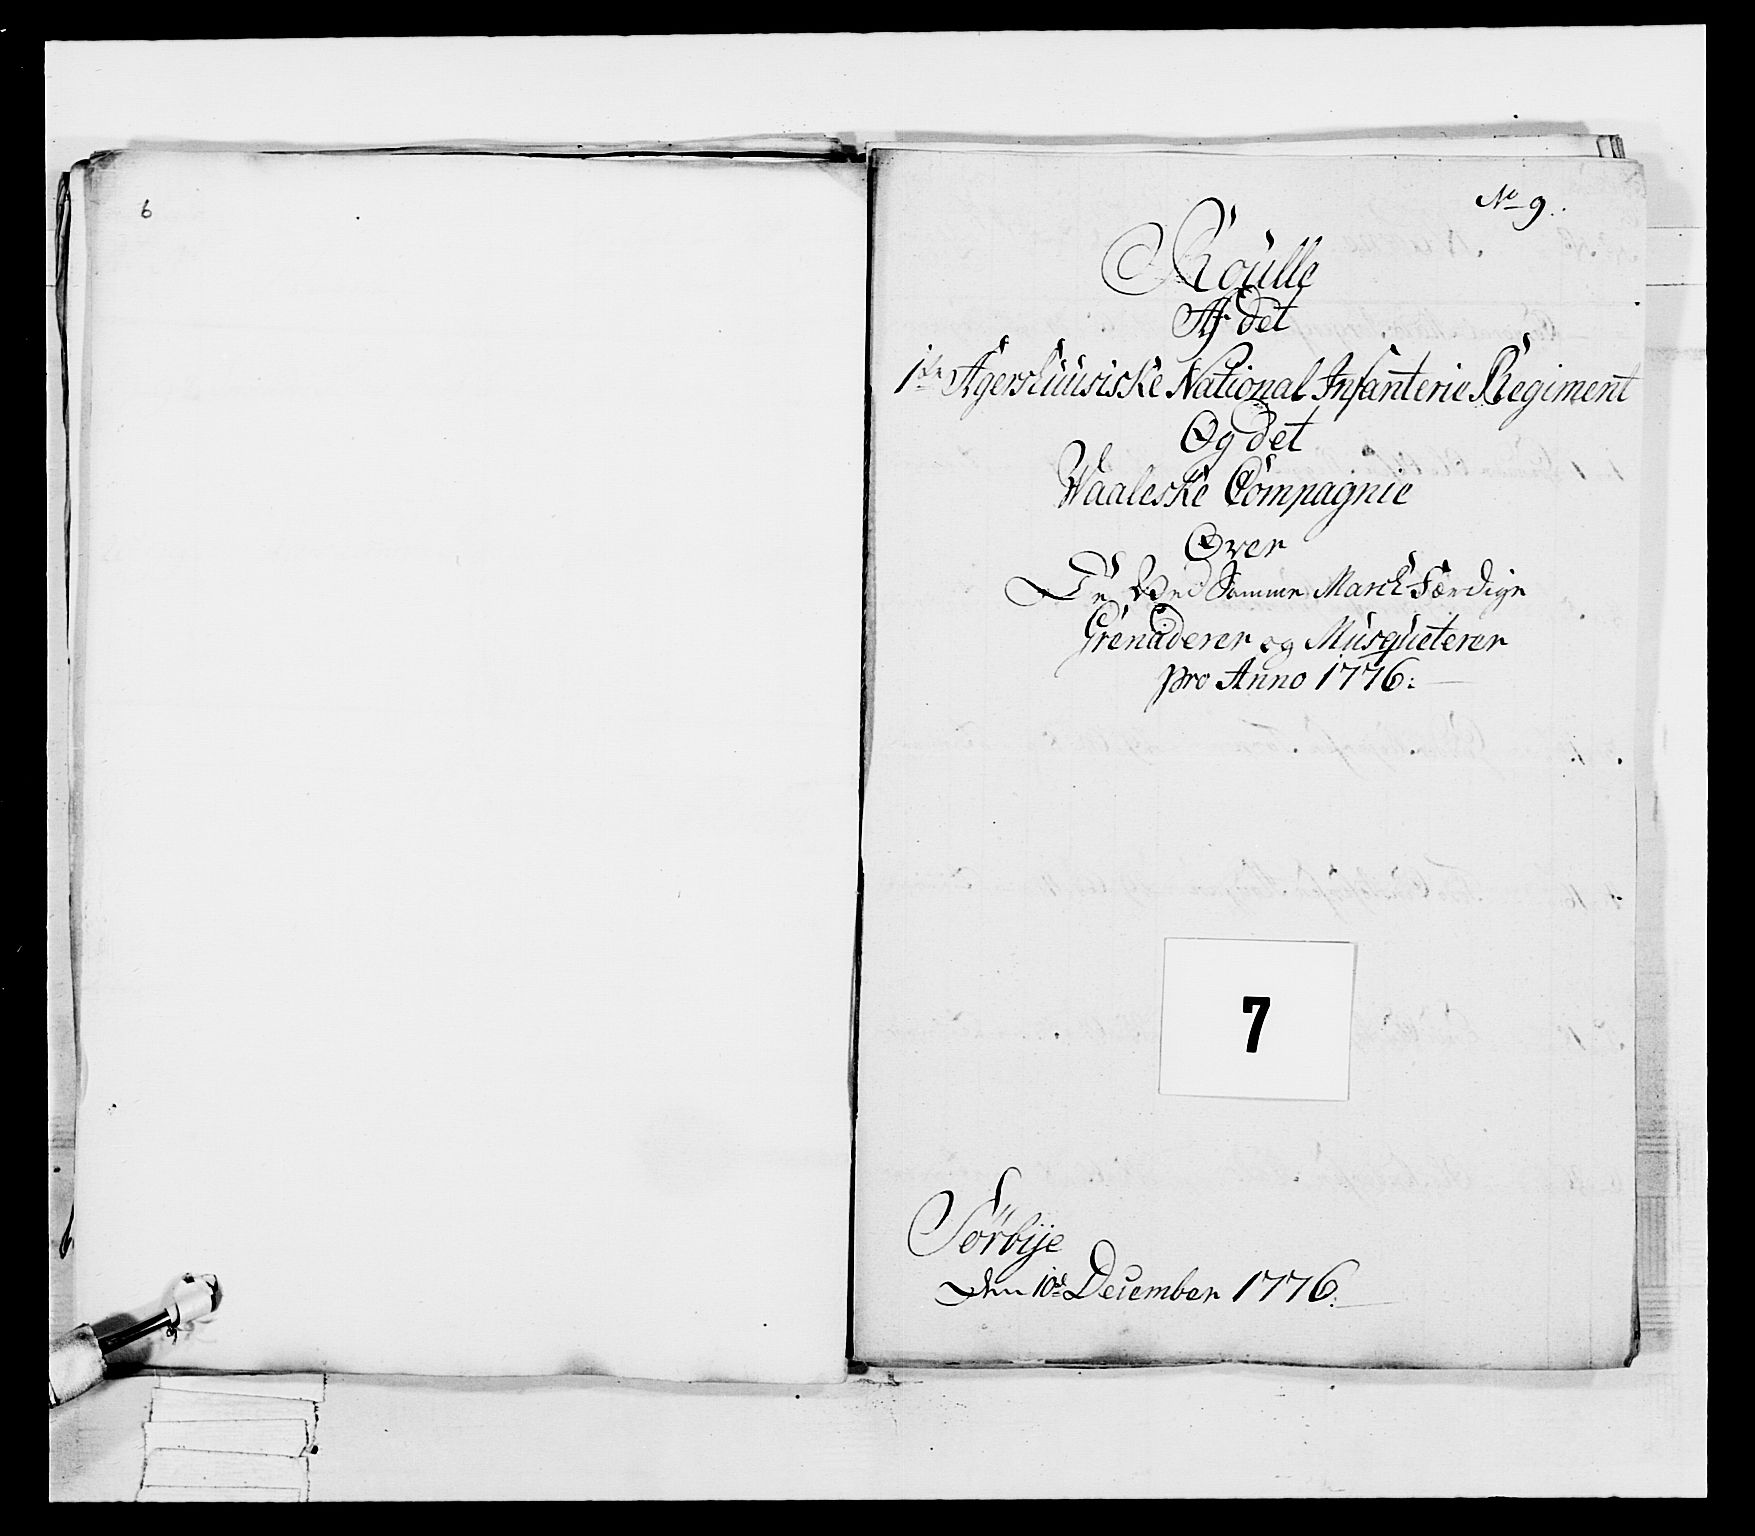 6
No 9.
Roulle
Af det
1ste Agershuusiske National Infanterie Regiment
Og det
Waaleske Compagnie
Over
De Ved Samme March Færdige
Grenaderer og Musqueterer
pro Anno 1776.
7
Sørbÿe
den 10de December 1776.